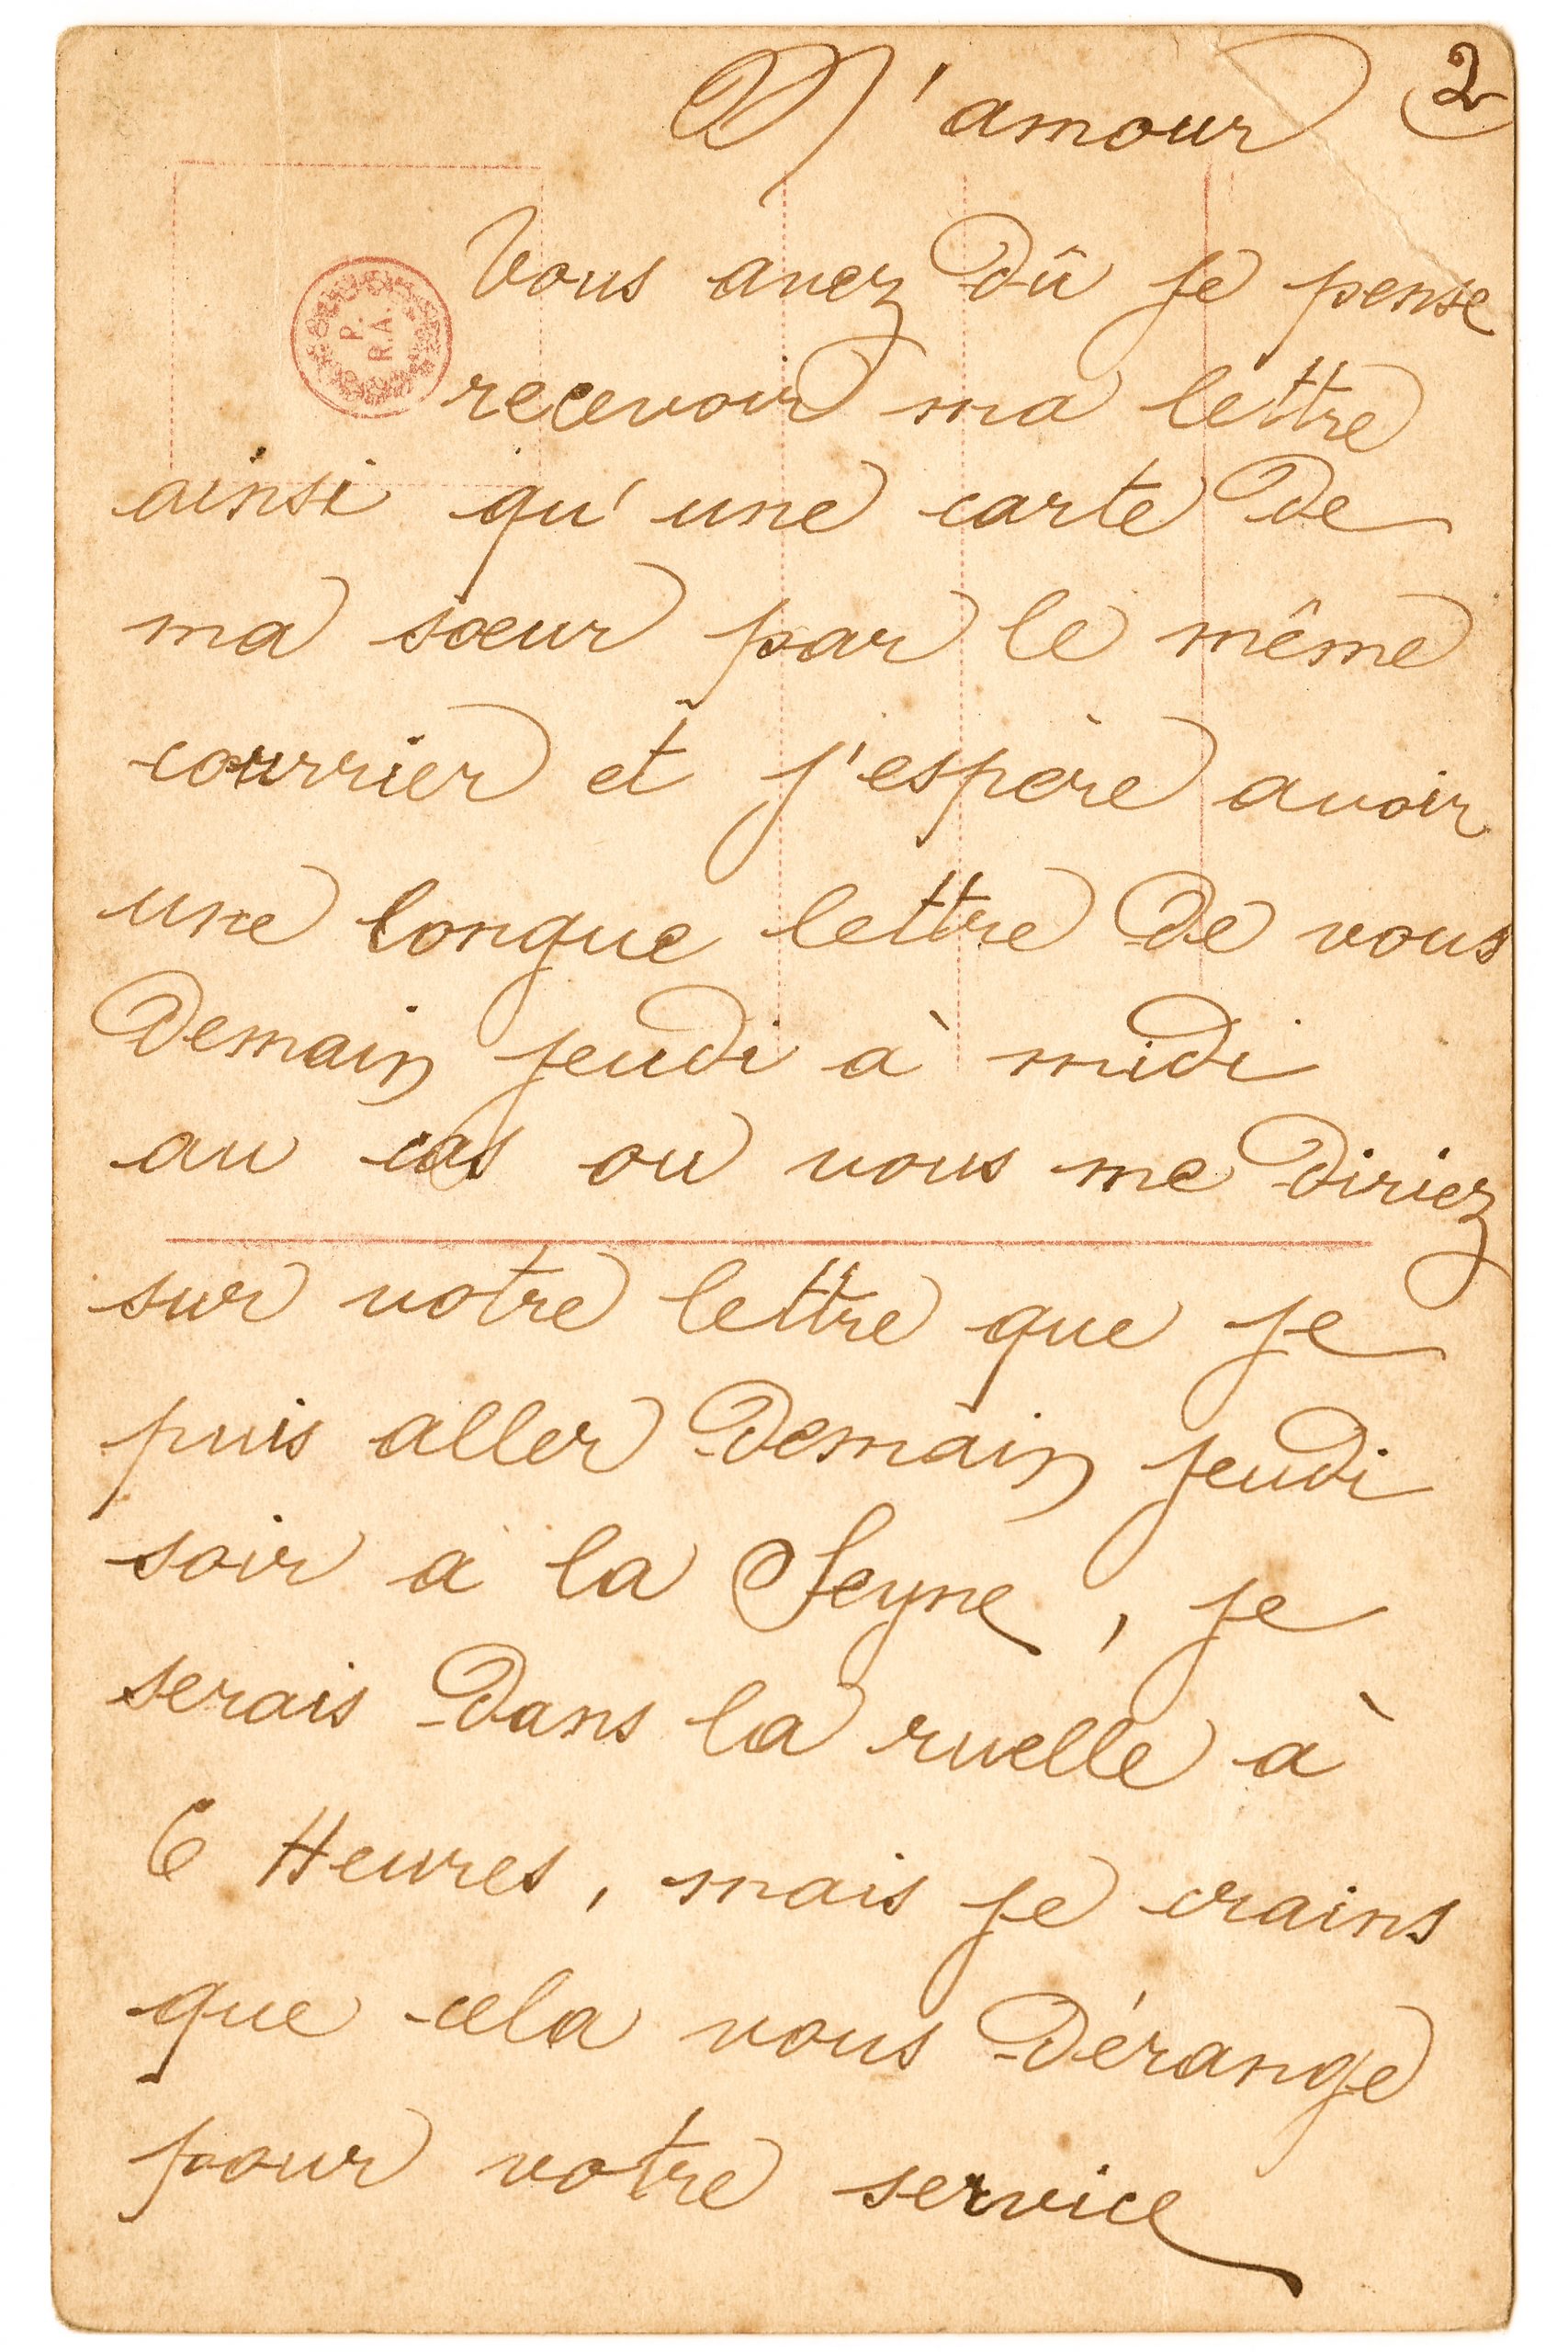 M'amour 2
Vous avez dû je pense
P.
R.A.
recevoir ma lettre
ainsi qu'une carte de
ma sœur par le même
courrier et j'espère avoir
une longue lettre de vous
Demain jeudi à midi
au cas ou vous me diriez
sur votre lettre que je
puis aller Demain jeudi
soir à la Seyne, je
serais Dans la ruelle à
6 Heures, mais je crains
que cela vous Dérange
pour votre service